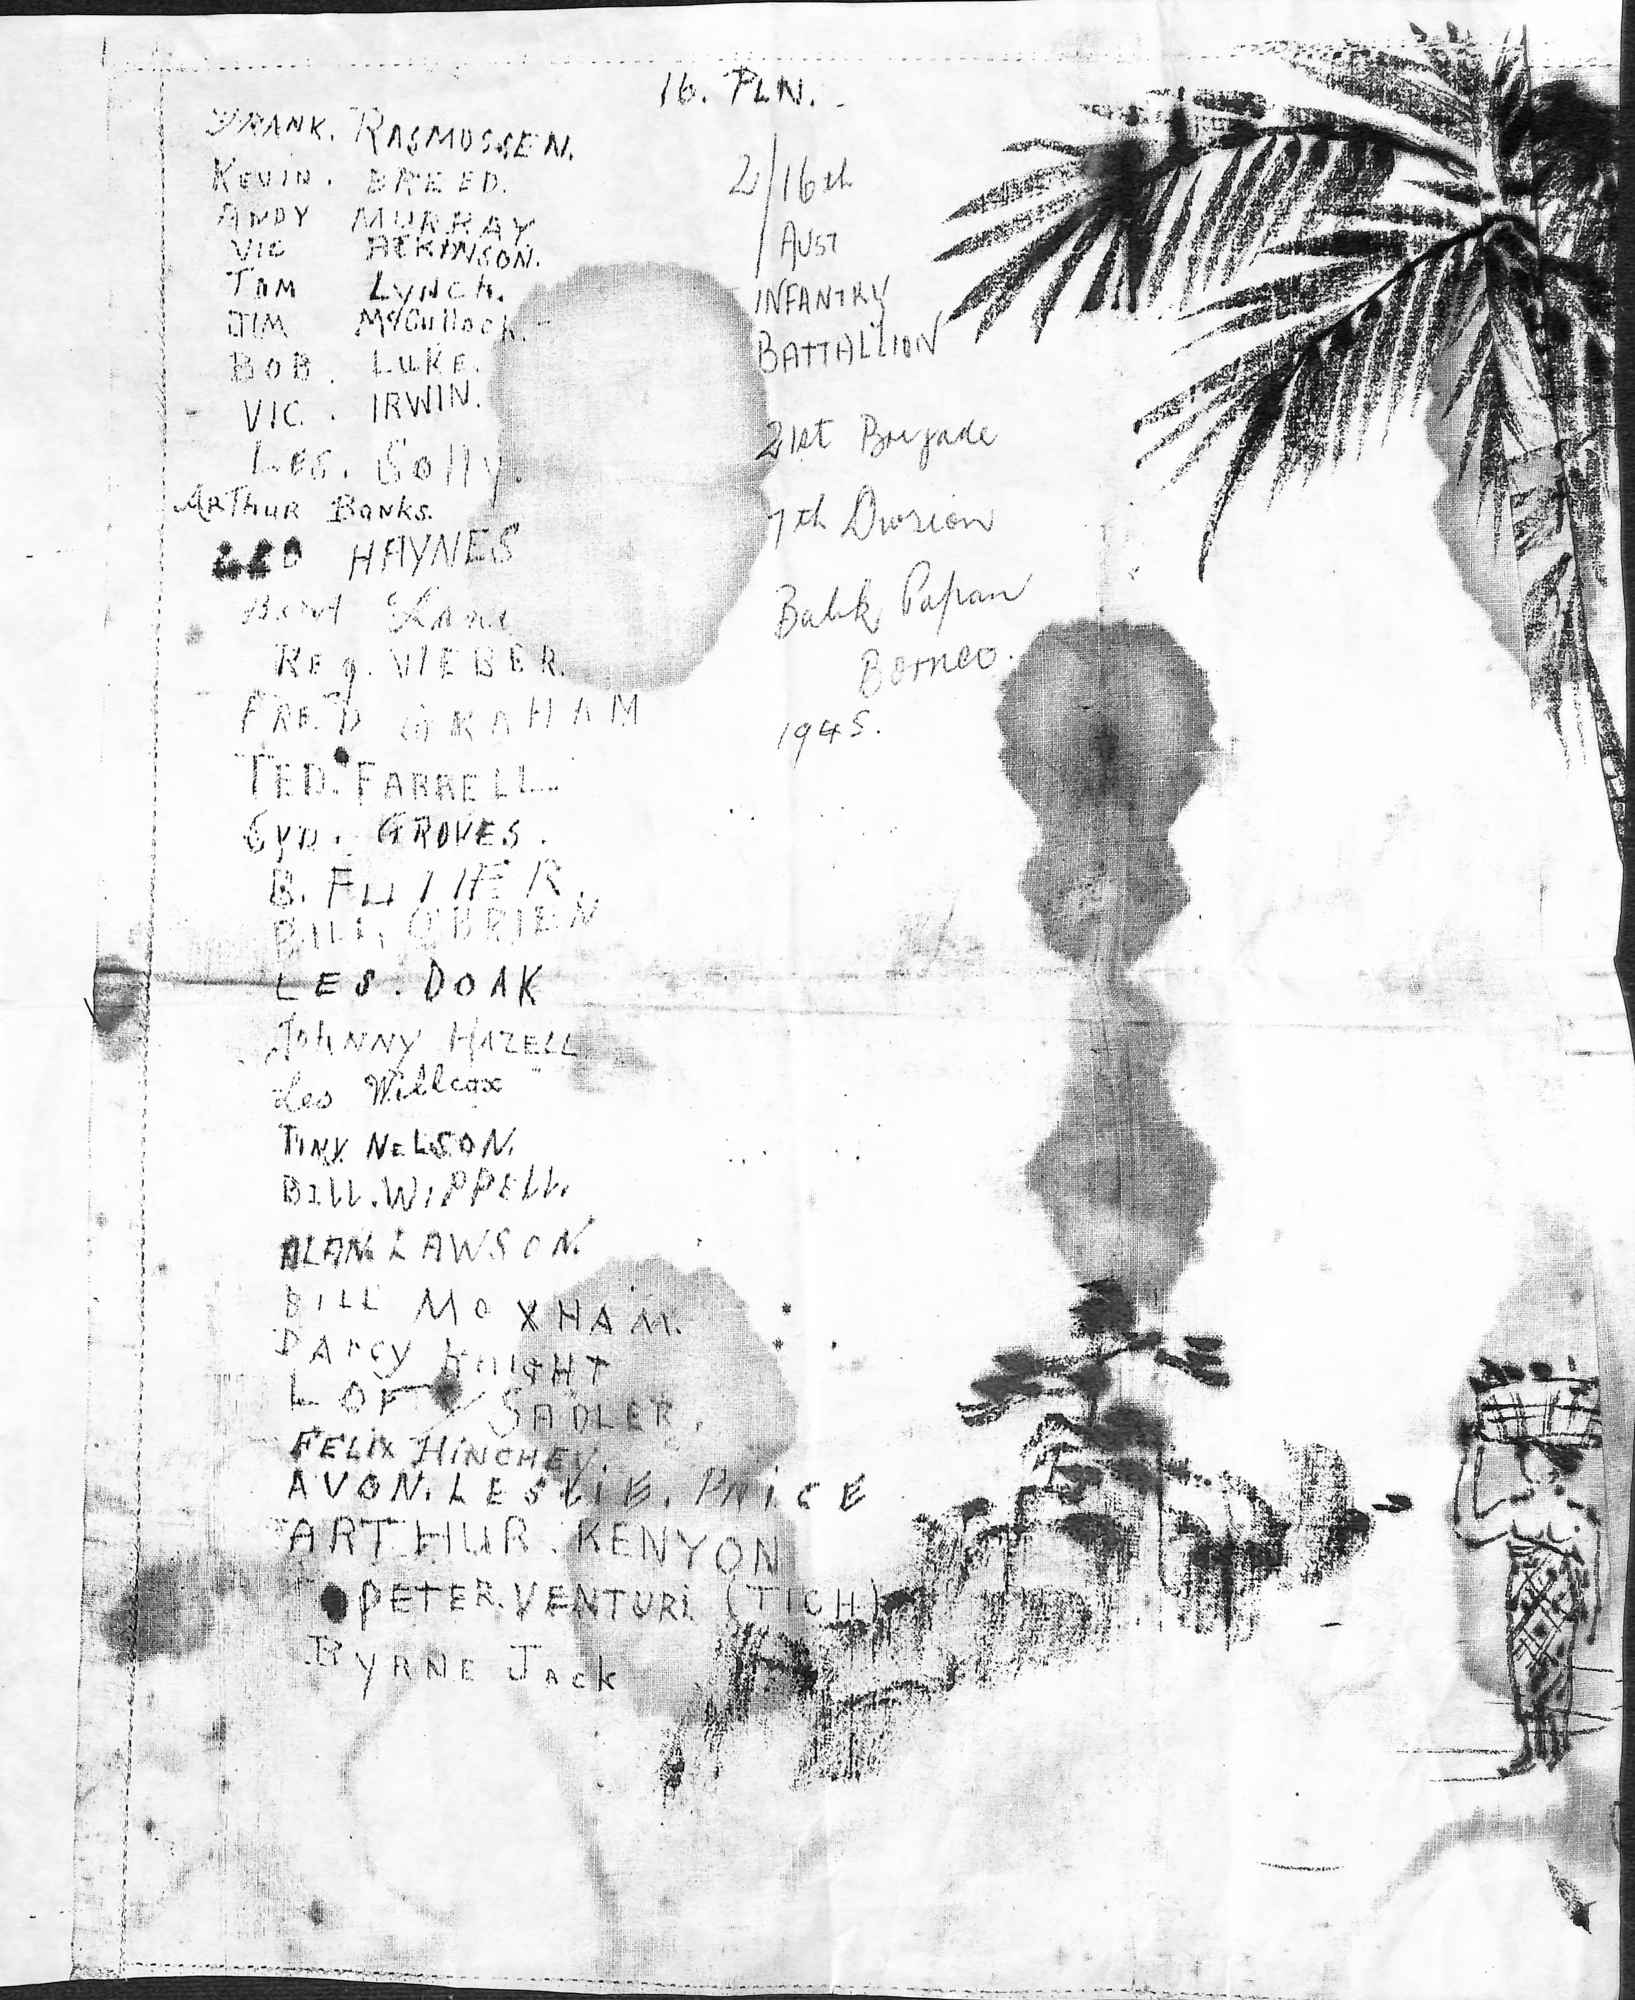 16. PLN.
FRANK. RASMUSSEN.
KEVIN. BREED.
ANDY MURRAY
VIC ATKINSON.
TOM LYNCH.
JIM McCullock.
BOB. LUKE.
VIC. IRWIN.
LES. Solly.
ARThUR BANKS.
LEO HAYNES
Bert Lane
REg. WEBER.
FRED GRAHAM
TED. FARRELL.
SYD. GROVES.
B.
BILL. O'BRIEN
LES. DOAK
JOHNNY HAZELL
Les Willcox
TINY NELSON.
BILL. WIPPELL.
ALAN. LAWSON.
BILL MOXHAM.
DARCY KNIGHT
LOFTY SADLER.
FELIX HINCHEY.
AVON. LESLIE. PRICE
ARTHUR. KENYON
PETER. VENTURI (TICH)
BYRNE JACK
2/16th
AUST
INFANTRY
BATTALLION
21st Brigade
7th Division
Balik Papan
Borneo.
1945.